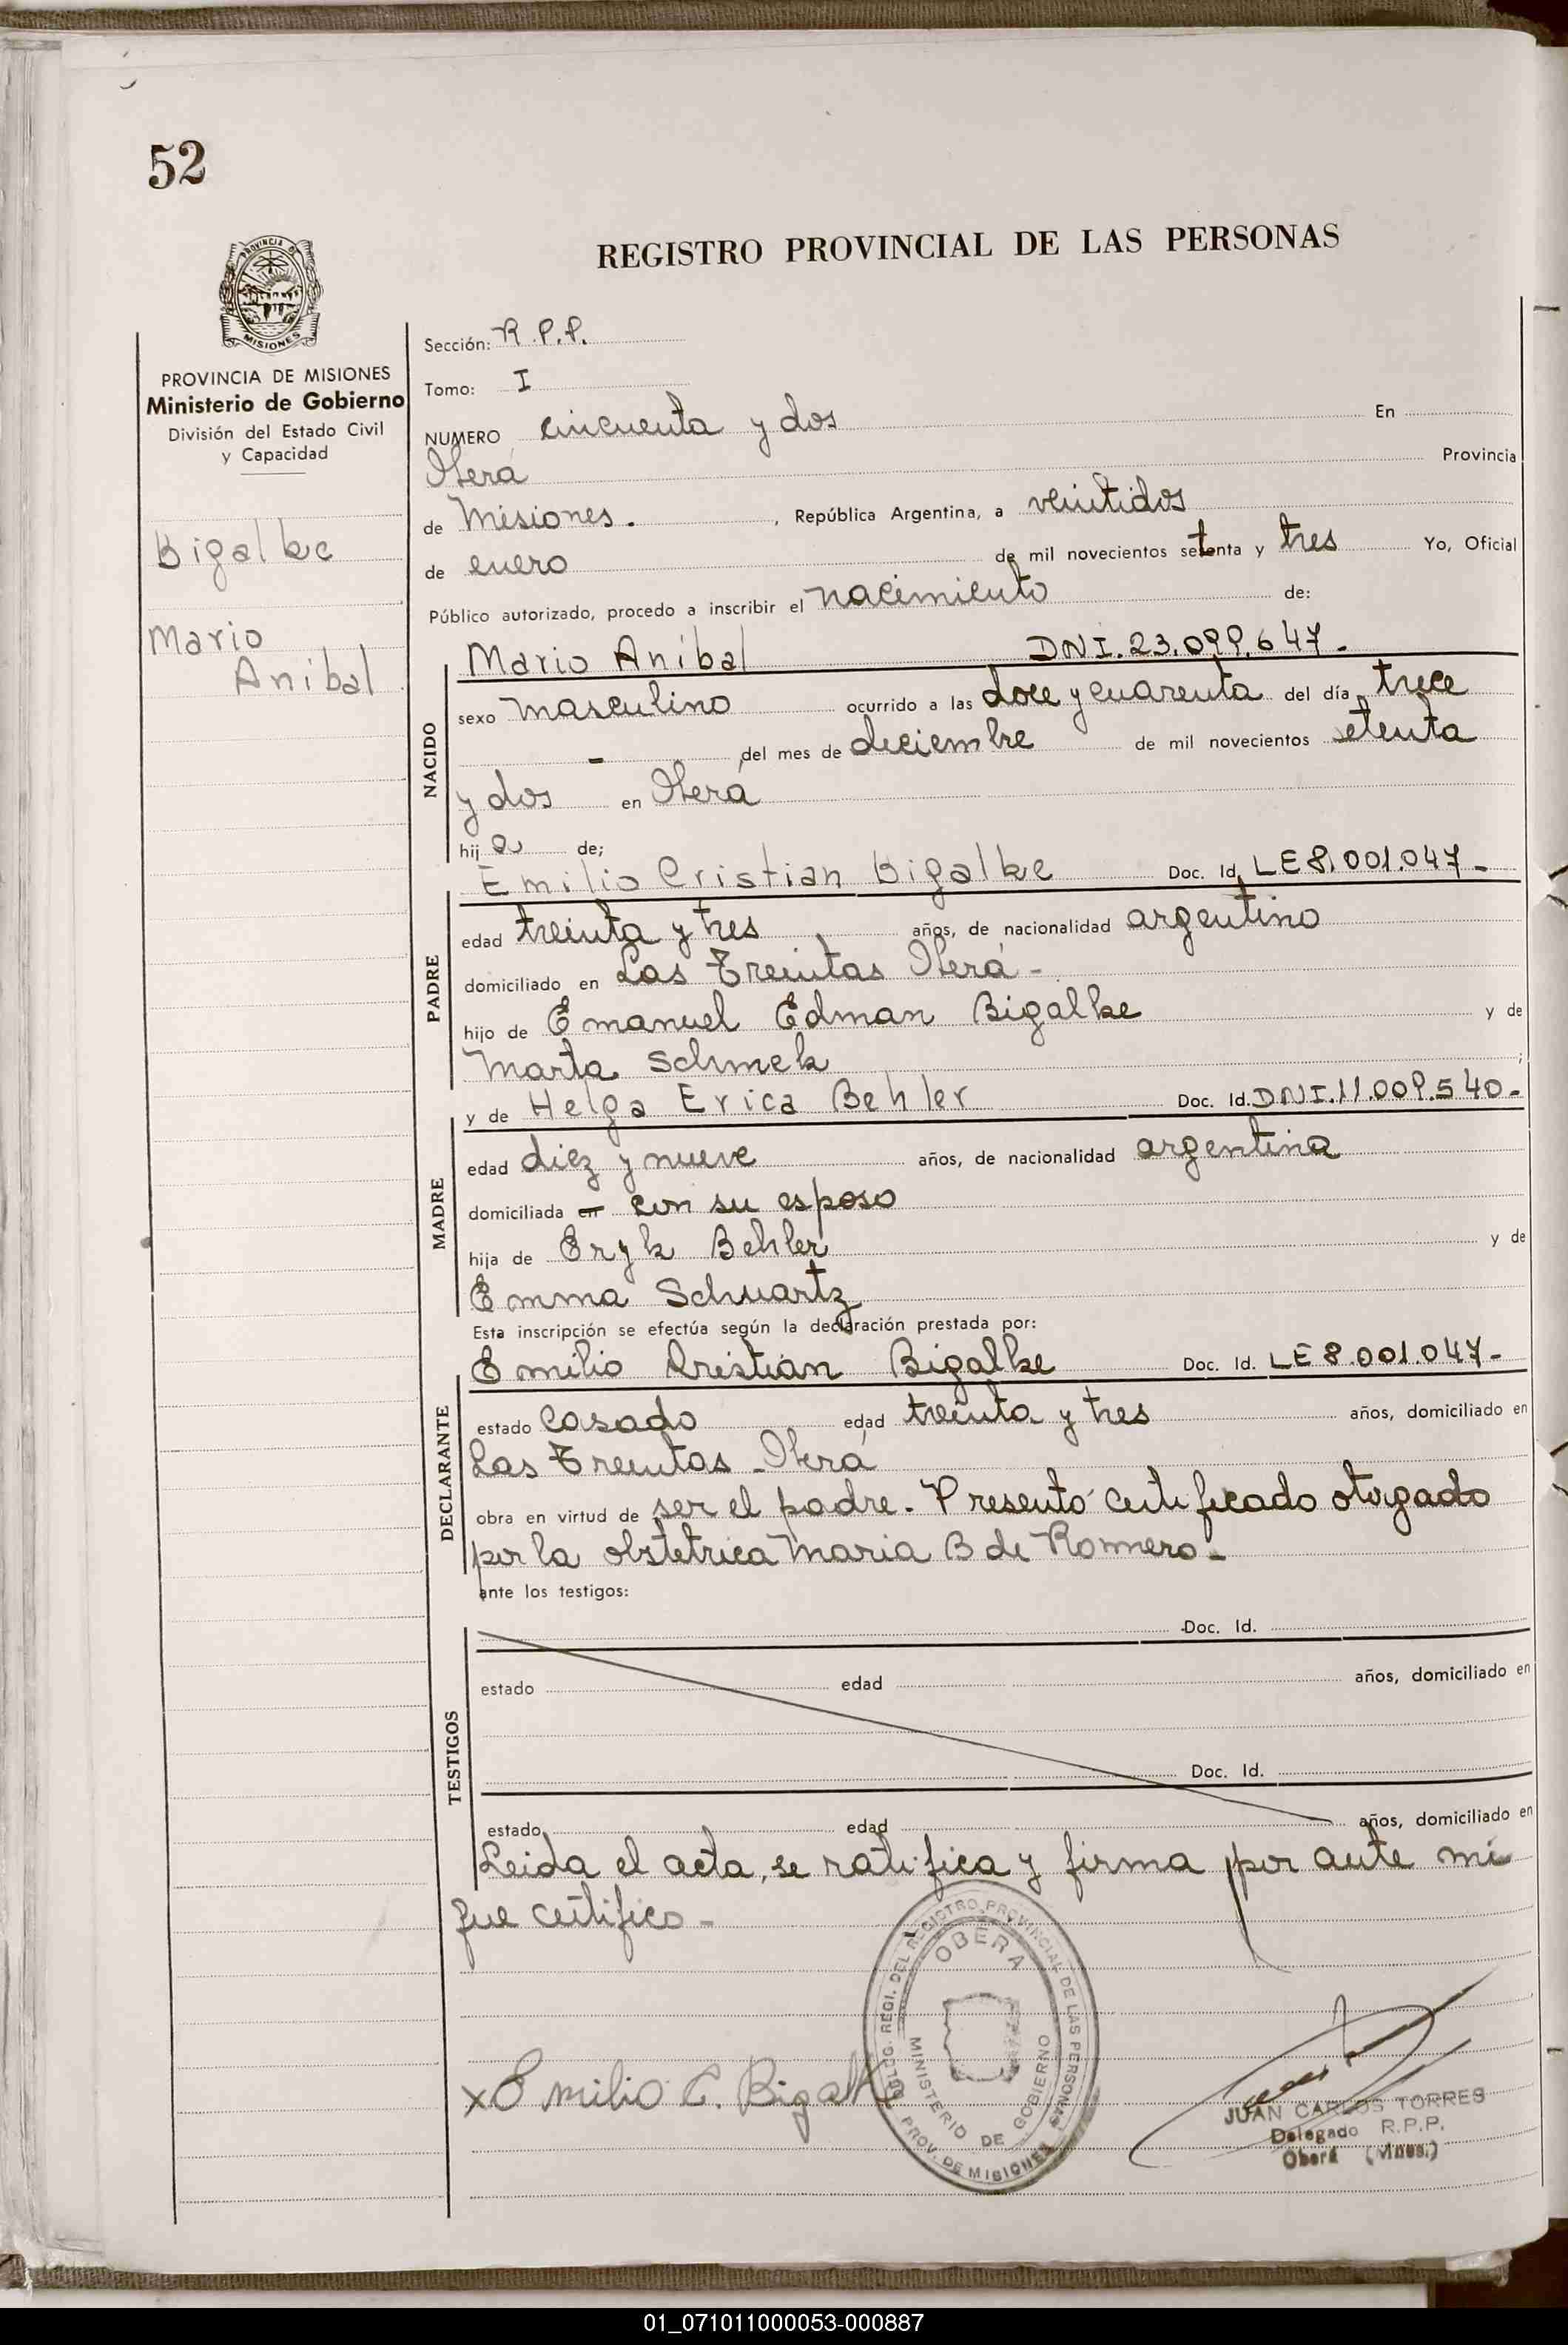 52
REGISTRO PROVINCIAL DE LAS PERSONAS
PROVINCIA DE
MISIONES
PROVINCIA DE MISIONES
Ministerio de Gobierno
División del Estado Civil
y Capacidad
Bigalke
Mario
Anibal
Sección: R.P.P.
Tomo: I
NUMERO cincuenta y dos En
Oberá Provincia
de Misiones. , República Argentina, a veintidos
de enero de mil novecientos setenta y tres Yo, Oficial
Público autorizado, procedo a inscribir el nacimiento de:
Mario Anibal DNI.23.099.647.-
NACIDO
sexo masculino ocurrido a las doce y cuarenta del día trece
- del mes de diciembre de mil novecientos setenta
y dos en Oberá
hijo de;
Emilio Cristian Bigalke Doc. Id. LE 8.001.047-
PADRE
edad treinta y tres años, de nacionalidad argentino
domiciliado en Las Treintas Oberá-
hijo de Emanuel Edman Bigalke y de
Marta Schmek ;
y de Helga Erica Behler Doc. Id. DNI.11.009.540-
MADRE
edad diez y nueve años, de nacionalidad argentina
domiciliada en con su esposo
hija de Eryk Behler y de
Emma Schwartz
Esta inscripción se efectúa según la declaración prestada por:
Emilio Cristian Bigalke Doc. Id. LE 8.001.047-
DECLARANTE
estado casado edad treinta y tres años, domiciliado en
Las Treintas - Oberá
obra en virtud de ser el padre. Presentó certificado otorgado
por la obstetrica Maria B de Rommero-
ante los testigos:
TESTIGOS
Doc. Id.
estado edad años, domiciliado en
Doc. Id.
estado edad años, domiciliado en
Leida el acta, se ratifica y firma por ante mi
que certifico-
DEL REGISTRO PROVINCIAL DE LAS PERSONAS
OBERA
MINISTERIO DE GOBIERNO
PROV. DE MISIONES
x Emilio C. Bigalke
JUAN CARLOS TORRES
Delegado R.P.P.
Oberá (Mnes.)
01_071011000053-000887